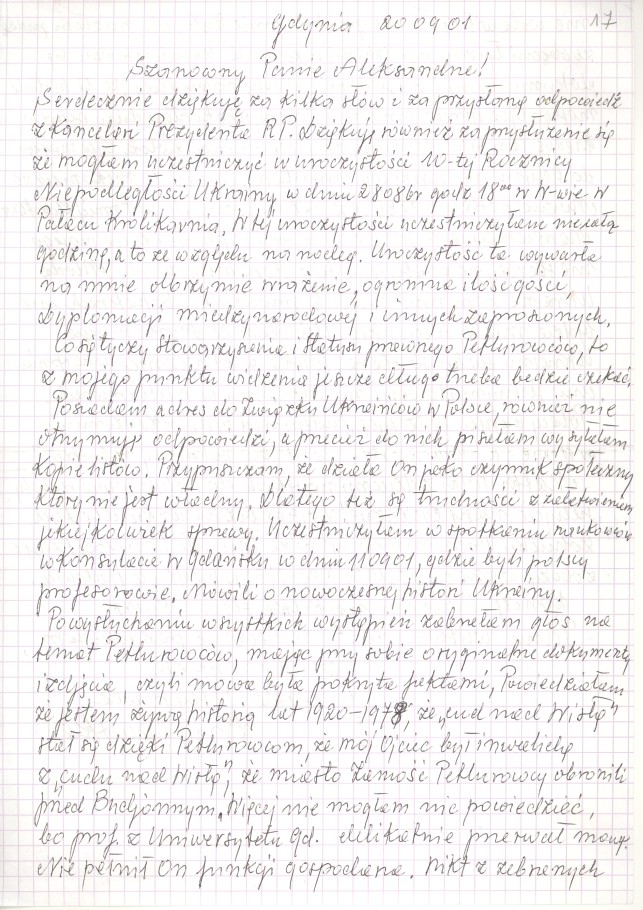 Gdynia 200901 17
Szanowny Panie Aleksandrze!
Serdecznie dziękuję za kilka słów i za przysłaną odpowiedź
z Kancelarii Prezydenta RP. Dziękuję również za przysłużenie się
że mogłam uczestniczyć w uroczystości 10-tej Rocznicy
Niepodległości Ukrainy w dniu 28 08 br godz 18⁰⁰ w W-wie w
Pałacu Królikarnia. W tej uroczystości uczestniczyłam niecałą
godzinę, a to ze względu na nocleg. Uroczystość ta wywarła
na mnie olbrzymie wrażenie, ogromna ilość gości,
dyplomacji międzynarodowej i innych zaproszonych.
Co się tyczy Stowarzyszenia i statusu prawnego Petlurowców, to
z mojego punktu widzenia jeszcze długo trzeba będzie czekać.
Posiadam adres do Związku Ukraińców w Polsce, również nie
otrzymuję odpowiedzi, a przecież do nich pisałam wysyłałam
kopie listów. Przypuszczam, że działa On jako czynnik społeczny
który nie jest władny. Dlatego też są trudności z załatwieniem
jakiejkolwiek sprawy. Uczestniczyłam w spotkaniu naukowców
w Konsulacie w Gdańsku w dniu 110901, gdzie byli polscy
profesorowie. Mówili o nowoczesnej historii Ukrainy.
Po wysłuchaniu wszystkich wystąpień zabrałam głos na
temat Petlurowców, mając przy sobie oryginalne dokumenty
i zdjęcia, czyli mowa była pokryta faktami, Powiedziałam
że jestem żywą historią lat 1920–1978, że „cud nad Wisłą"
stał się dzięki Petlurowcom, że mój Ojciec był inwalidą
z „cudu nad Wisłą", że miasto Zamość Petlurowcy obronili
przed Budjonnym. Więcej nie mogłam nic powiedzieć,
bo prof. z Uniwersytetu Gd. delikatnie przerwał mowę.
Nie pełnił On funkcji gospodarza. Nikt z zebranych